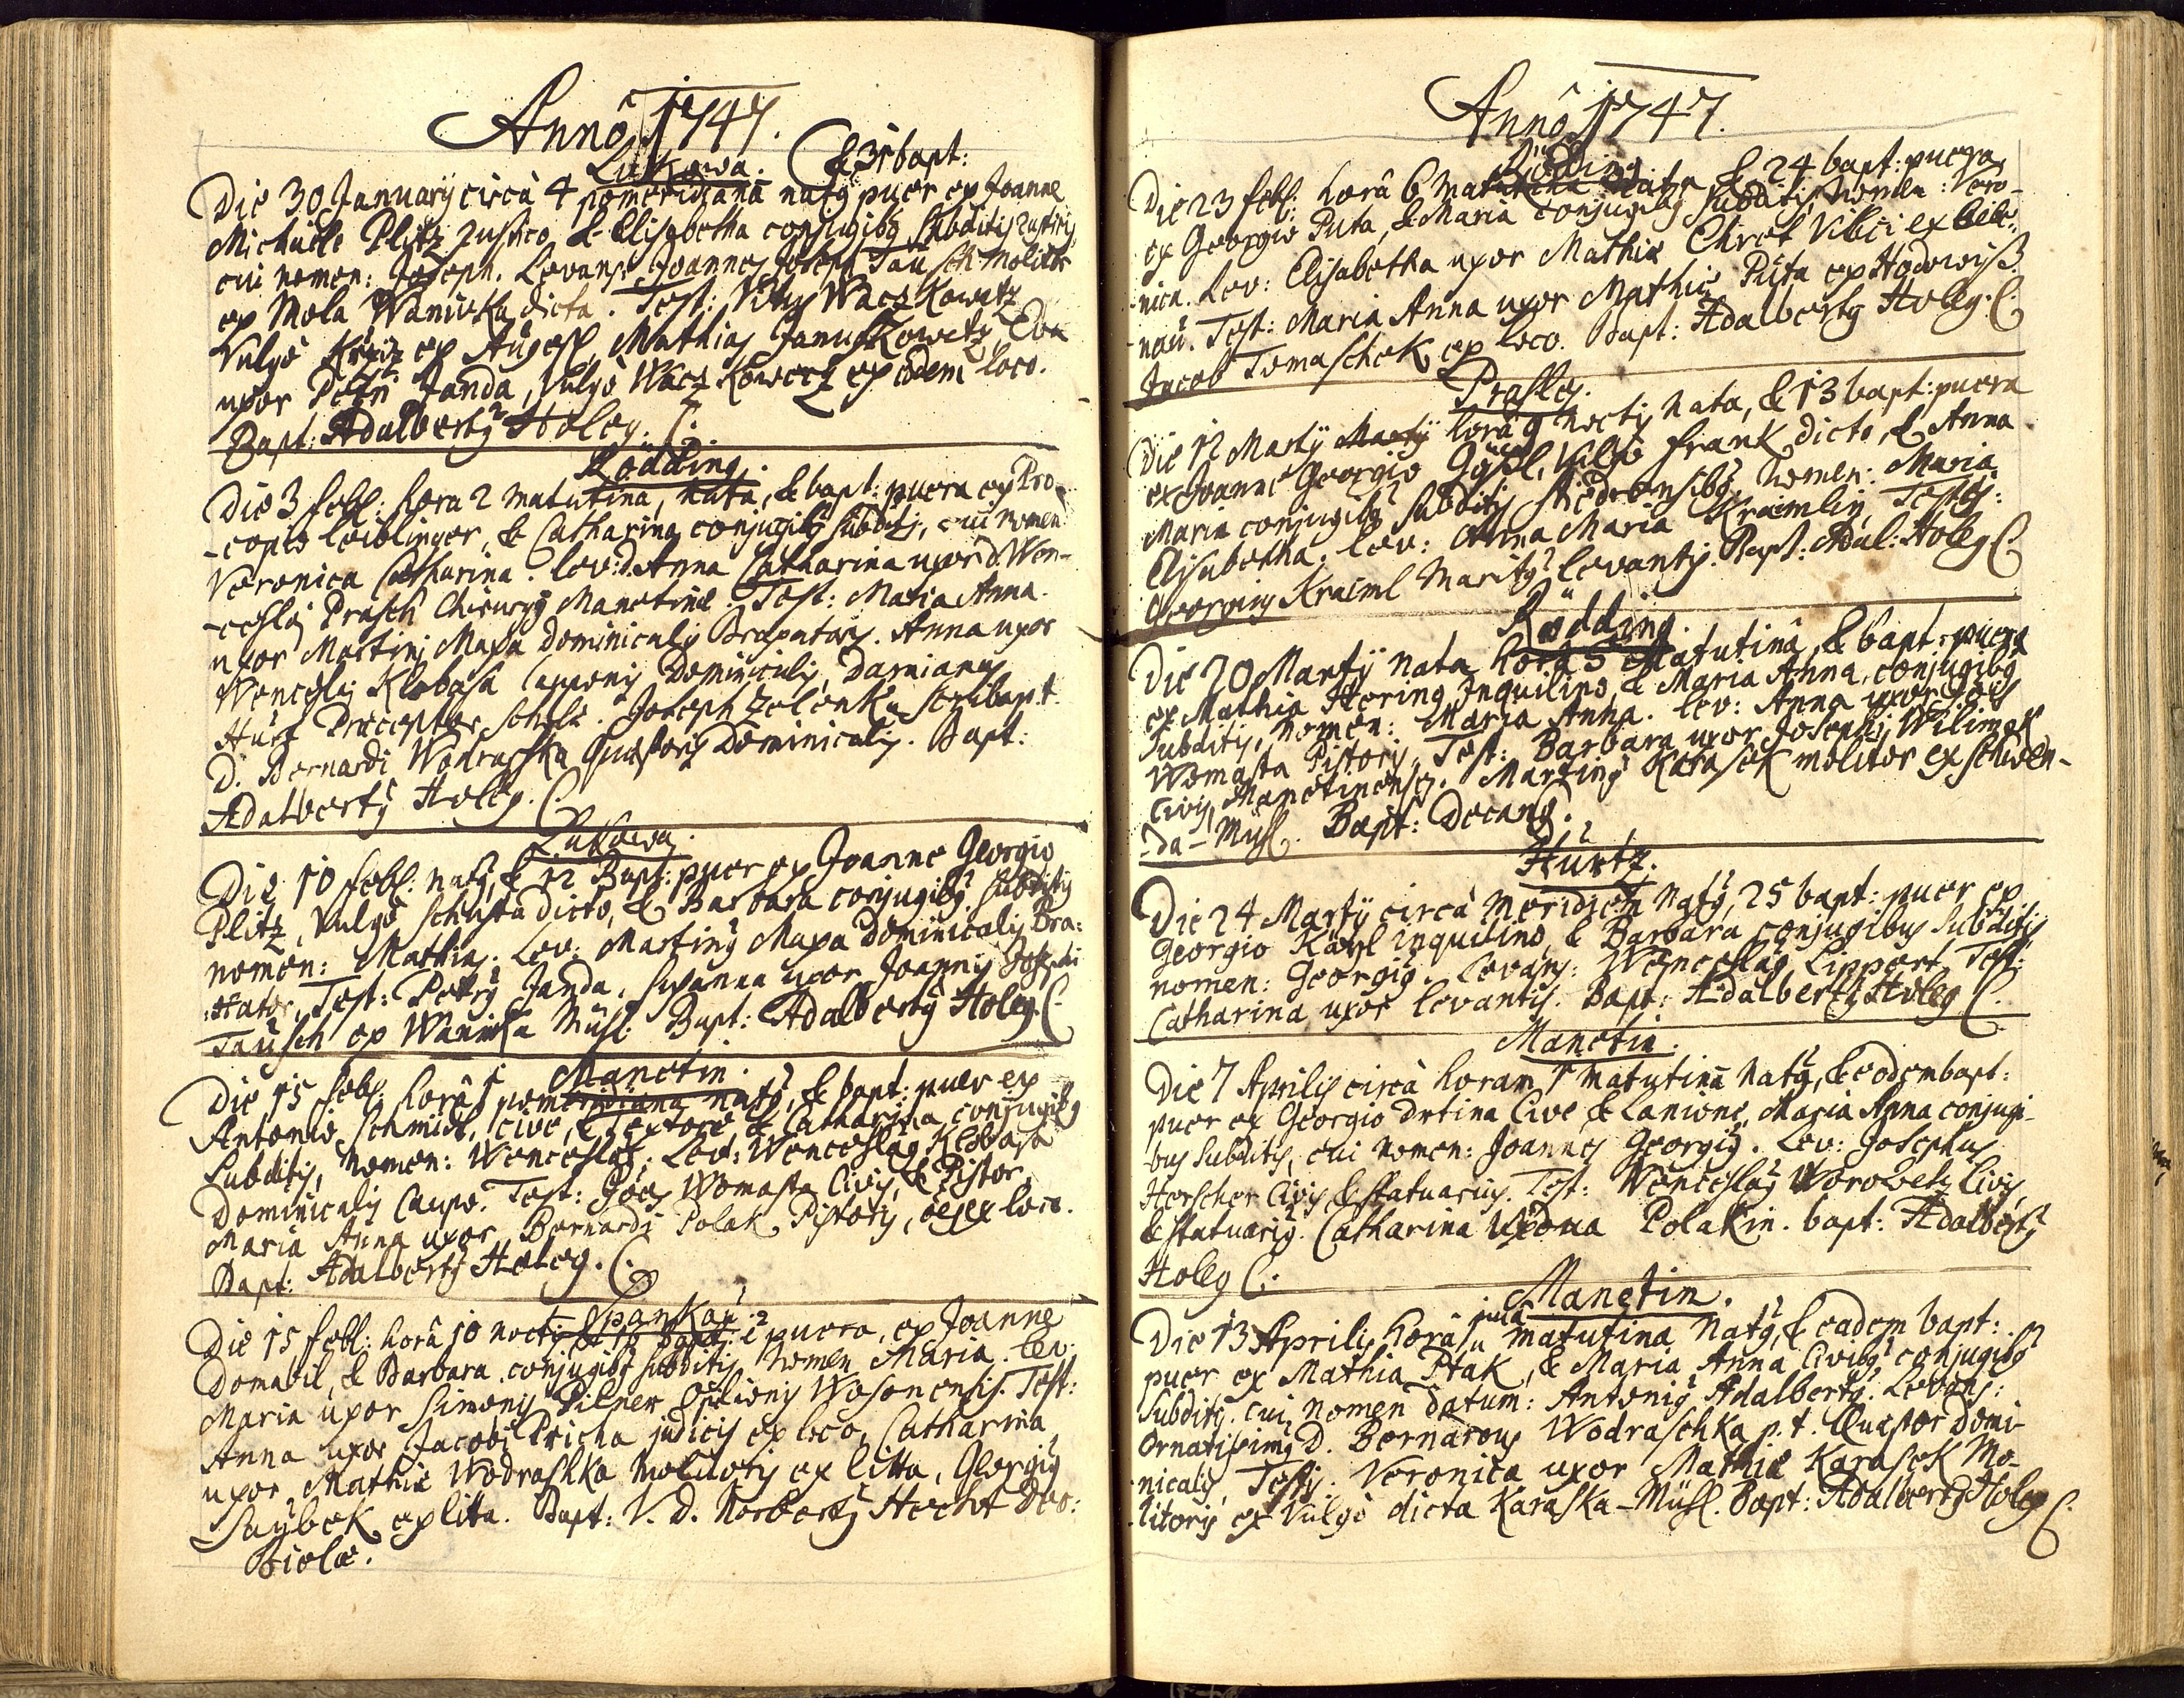 Annô 1747.
Lukowa. & 31 bapt:
Die 30 Januarÿ circà 4 pomeridianā natꝰ puer ex Joanne
Michaele Plitz rustico & Elisabetha conjugibꝰ subditis
cui nomen: Joseph. Levans Joannes Joseph Tausch molitor
ex Mola Waniwka dicta. Test: Vitus Waczkowetz
Vulgò ex Augest, Mathias Januskowetz, Eva
uxor Petri Janda, Vulgò Waczkowetz ex eodem loco.
Bapt: Adalbertꝰ Holeg. C.
Rödding.
Die 3 Febr: hora 2 matutina, nata, & bapt: puera ex Pro-
-copio Leiblinger, & Catharina conjugibꝰ subditis, cui nomen
Veronica Catharina. Lev: D. Anna Catharina uxor D. Wen-
-ceslaj Prasch Chirurgj Manetinæ. Test: Maria Anna
uxor Martinj Maxa Dominicalis Braxatoris. Anna uxor
Wenceslaj Klobasa Cauponis Dominicalis, Damianus
Hürt Præceptor scholæ. Joseph Zelenka
D. Bernardi Wodraschka Quæstoris Dominicalis. Bapt:
Adalbertꝰ Holeg. C.
Lukowa.
Die 10 Febr: natꝰ, & 12 Bapt: puer ex Joanne Georgio
Plitz, Vulgò Schusta dicto, & Barbara conjugibꝰ subditis
nomen: Mathias. Lev: Martinꝰ Maxa Dominicalis Bra:
:xator, Test: Petrꝰ Janda, Susanna uxor Joannis Josephi
Tausch ex Waniwka Mühl. Bapt: Adalbertꝰ Holeg. C.
Manetin.
Die 15 Febr: horâ 1 pomeridiana natꝰ, & bapt: puer ex
Antonio Schmidt, cive, & textore & Catharina conjugibꝰ
Subditis, nomen: Wenceslaꝰ. Lev: Wenceslaꝰ Klobasa
Dominicalis Caupo. Test: Joēs Womasta Civis, & Pistor,
Maria Anna uxor Bernardj Polak Pistoris, oēs ex loco.
Bapt: Adalbertꝰ Holeg. C.
Spankau.
Die 15 Febr: horâ 10 noctis & 16 Bapt: puera, ex Joanne
Domabil, & Barbara conjugibꝰ subditis nomen Maria. Lev:
Maria uxor Simonis Pilner Opilionis Wosoncensis. Test:
Anna uxor Jacobi Pricha judicis ex loco, Catharina
uxor Mathiæ Wodraschka molitoris ex Litta, Georgiꝰ
Saÿbek ex Litta. Bapt: V. D. Norbertꝰ Hecht Deo:
Annô 1747.
Rödding
Die 23 Febr: horâ 6 matutina nata & 24 bapt: puera
ex Georgio Puta, & Maria conjugibꝰ subditis, nomen: Vero-
-nica. Lev: Elisabetha uxor Mathiæ Chret Vilici ex Lite-
-nau. Test: Maria Anna uxor Mathiæ Puta ex Hodowiß
Jacob Tomaschek ex loco. Bapt: Adalbertꝰ Holeg. C.
Prasles.
Die 12 Martÿ hora 9 noctis nata, & 13 bapt: puera
ex Joanne Georgio Vulgò Frank dicto, & Anna
Maria conjugibꝰ subditis nomen: Maria
Elisabetha. Lev: Anna Maria Kraimlin, Testis:
Georgius Kraiml Maritꝰ levantis. Bapt: Adal: Holeg C.
Rödding.
Die 20 Martÿ nata hora 5 matutina, & bapt: puera
ex Mathia Hering Inquilino, & Maria Anna, conjugibꝰ
subditis, nomen: Maria Anna. Lev: Anna uxor Joīs
Womasta Pistoris. Test: Barbara uxor Josephj Wilimek
civis Manetinensis. Martinꝰ Karasek molitor ex Schwen-
-da-Mühl. Bapt: Decanꝰ.
Hürtz.
Die 24 Martÿ circà Meridiem Natꝰ, 25 bapt: puer ex
Georgio Karl inquilino, & Barbara conjugibus subditis
nomen: Georgiꝰ. Levans: Wenceslaꝰ Lippert, Test:
Catharina uxor levantis. Bapt: Adalbertꝰ Holeg C.
Manetin.
Die 7 Aprilis circà horam 1 matutinā natꝰ, & eodem bapt:
puer ex Georgio Drtina Cive & Lanione, Maria Anna conjugi-
-bus subditis, cui nomen: Joannes Georgiꝰ. Lev: Josephus
Herscher Civis & statuarius. Test: Wenceslaꝰ Worowetz Civis
& statuariꝰ. Catharina Polakin. bapt: Adalbertꝰ
Holeg C.
Manetin.
Die 13 Aprilis, hora matutina natꝰ, & eadem bapt:
puer ex Mathia Ptak, & Maria Anna Civibꝰ conjugibꝰ
subditis. cui nomen datum: Antoniꝰ Adalbertꝰ. Levans:
Ornatissimꝰ D. Bernardus Wodraschka p. t. Quæstor Domi-
-nicalis, Testis. Veronica uxor Mathiæ Karasek Mo-
-litoris ex Vulgò dicta Karaska-Mühl. Bapt: Adalbertꝰ Holeg C.